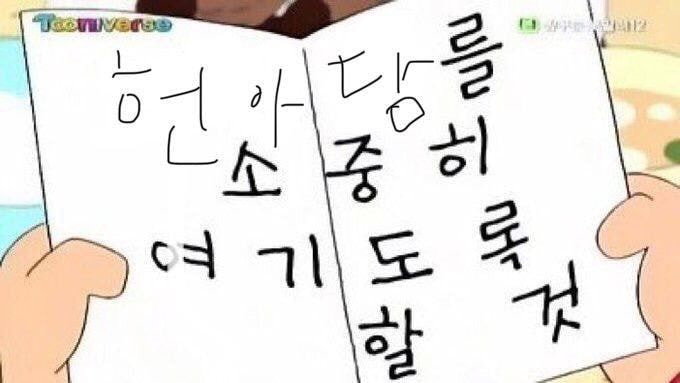 Tooniverse
헌아담를
소중히
여기도록
할 것